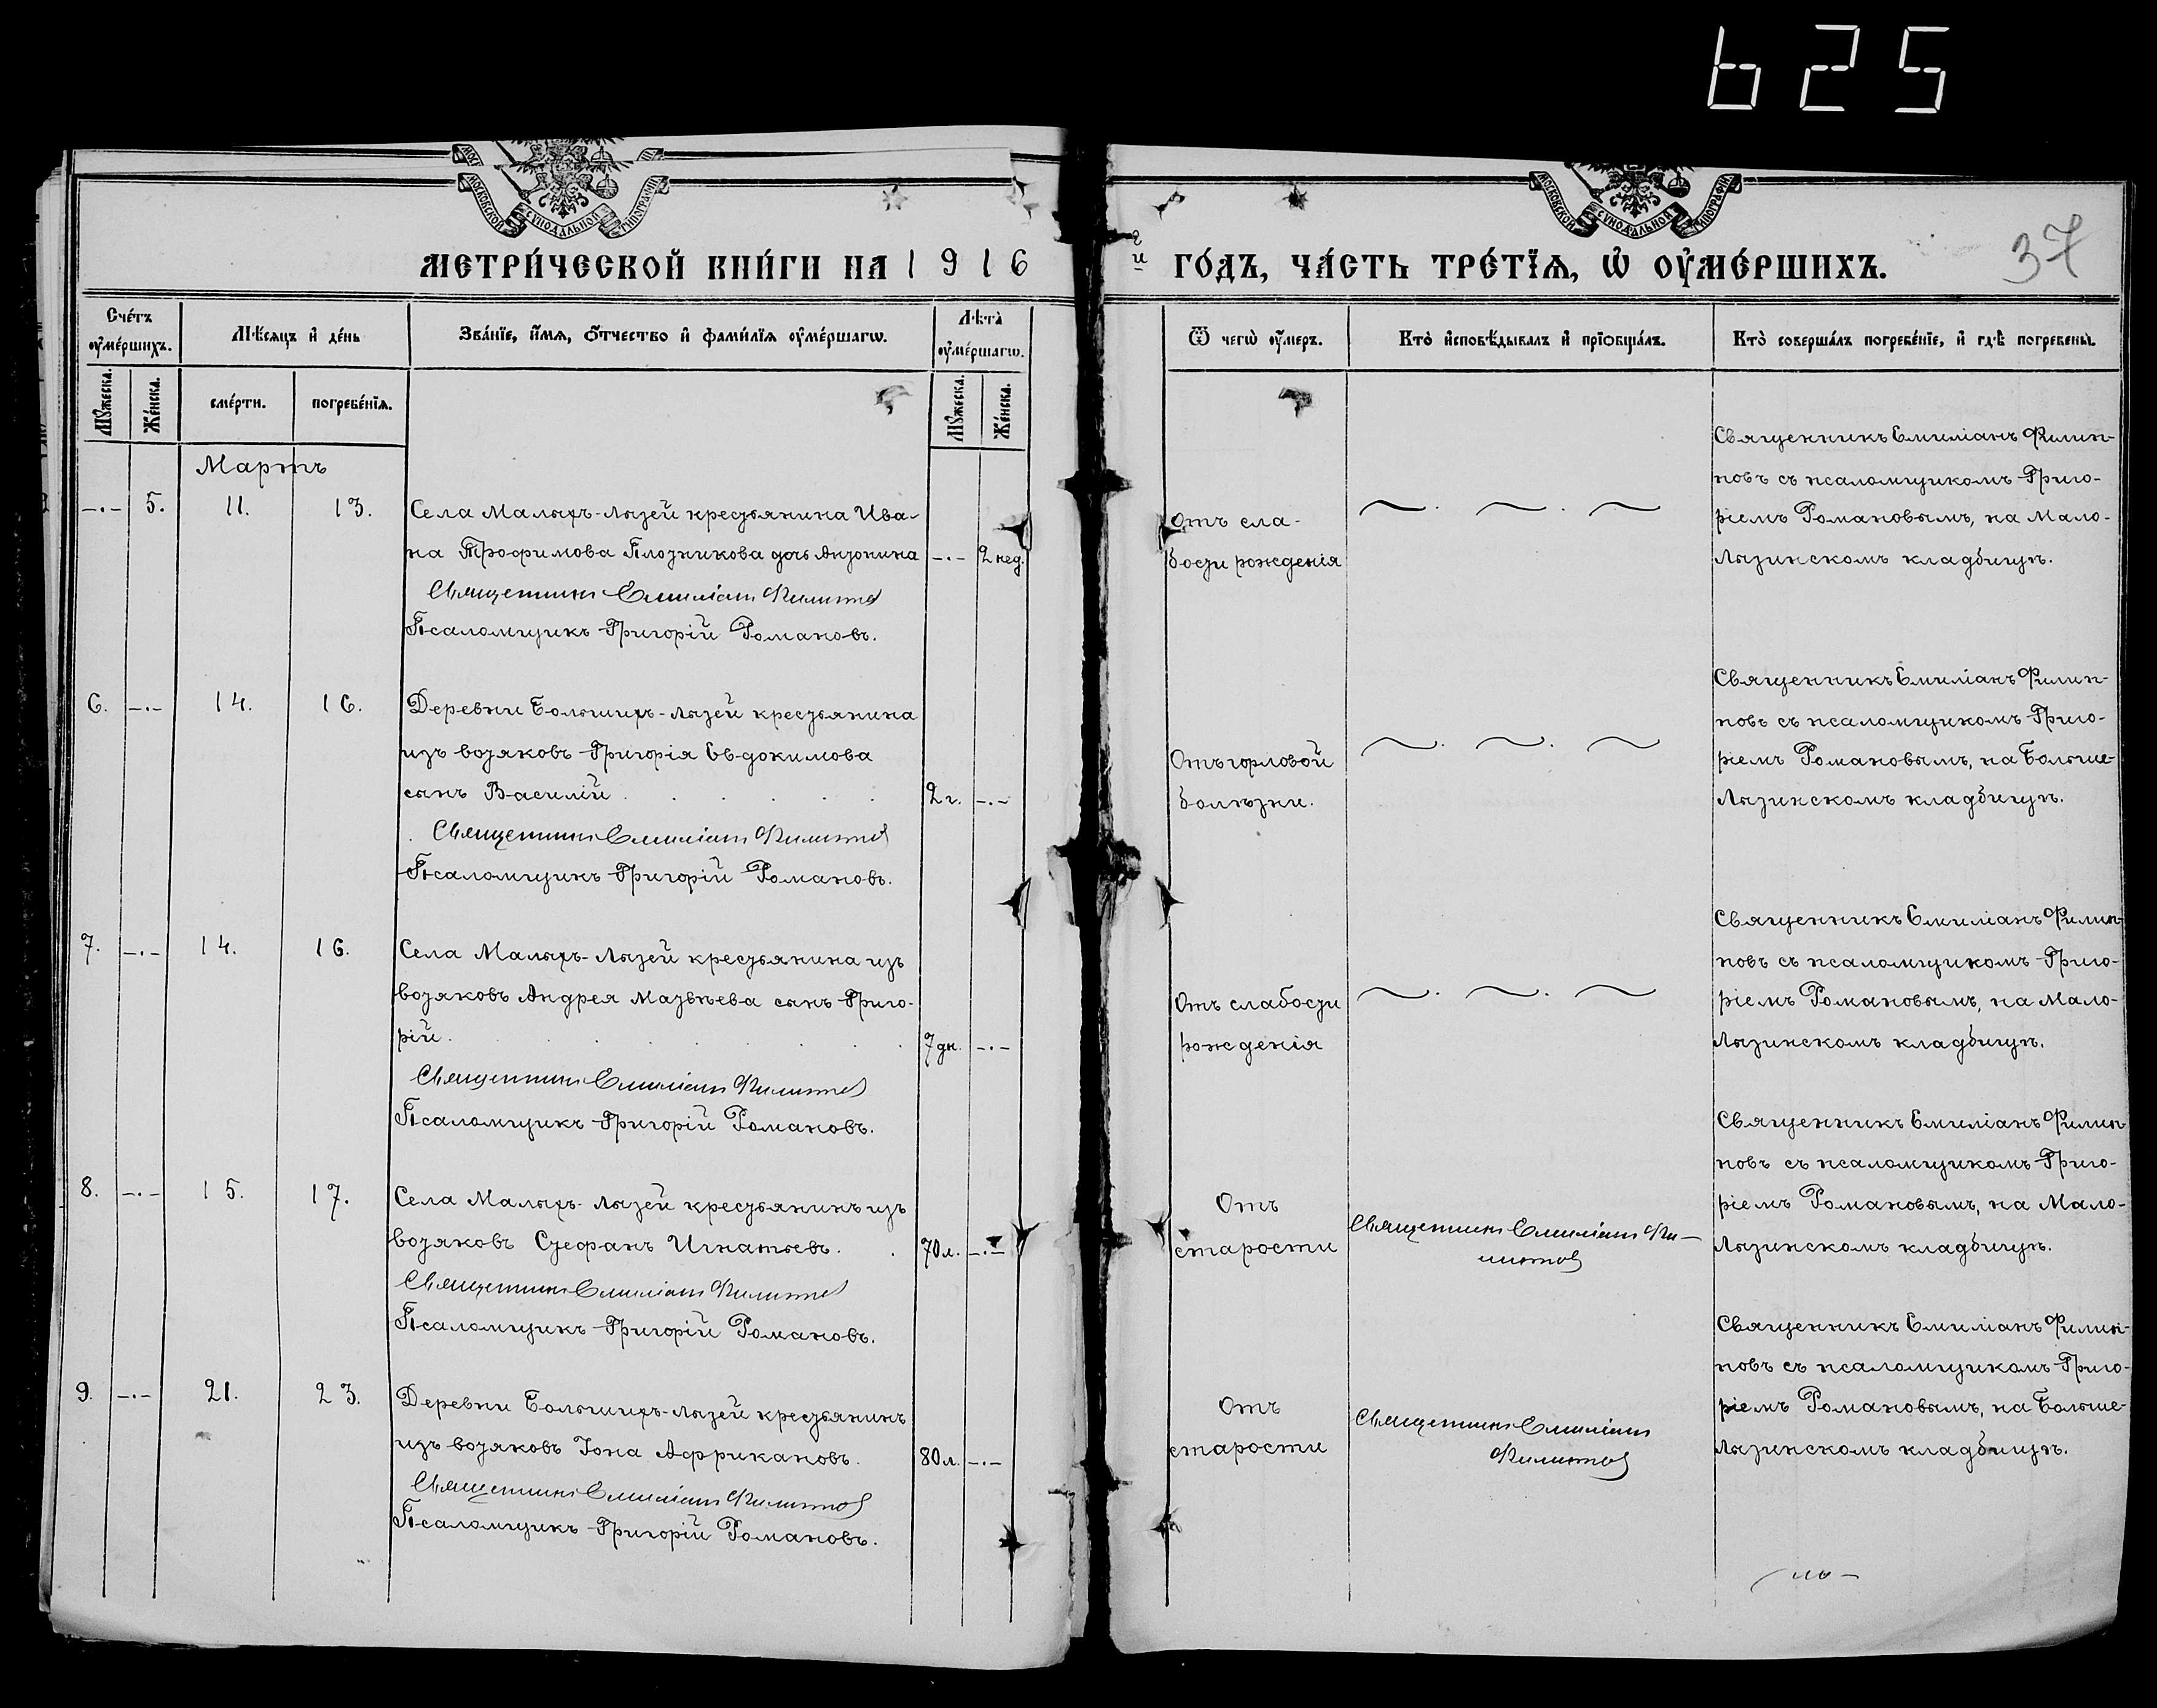 625
МОСКОВСКОЙ СУНОДАЛЬНОЙ ТИПОГРАФІИ.
МОСКОВСКОЙ СУНОДАЛЬНОЙ ТИПОГРАФІИ.
37
МЕТРИ́ЧЕСКОЙ КНИ́ГИ НА 1916й ГО́ДЪ, ЧА́СТЬ ТРЕ́ТЇѦ, Ѡ҆ ОУ҆МЕ́РШИХЪ.
Сче́тъ оу҆ме́ршихъ.
Мꙋ́жеска.
Же́нска.
Мѣ́сяцъ и҆ де́нь
сме́рти.
погребе́нїѧ.
Зва́нїе, и҆́мѧ, ѻ҆́тчество и҆ фами́лїѧ оу҆ме́ршагѡ.
Лѣ́та̀ оу҆ме́ршагѡ.
Мꙋ́жеска.
Же́нска.
Ѿ чегѡ̀ оу҆́меръ.
Кто̀ и҆сповѣ́дывалъ и҆ прїѡбща́лъ.
Кто̀ соверша́лъ погребе́нїе, и҆ гдѣ̀ погребены̀.
Мартъ
-·- 5. 11. 13.
Села Малыхъ-Лызей крестьянина Ива-
на Трофимова Плотникова дочь Антонина -·- 2 нед.
Священникъ Емиліанъ Филиппов
Псаломщикъ Григорій Романовъ.
Отъ сла-
бости рожденія
Священникъ Емиліанъ Филип-
повъ съ псаломщикомъ Григо-
ріемъ Романовымъ, на Мало-
Лызинскомъ кладбищѣ.
6. -·- 14. 16.
Деревни Большихъ-Лызей крестьянина
изъ вотяковъ Григорія Евдокимова
сынъ Василій . . . . . 2 г. -·-
Священникъ Емиліанъ Филиппов
Псаломщикъ Григорій Романовъ.
Отъ горловой
болѣзни.
Священникъ Емиліанъ Филип-
повъ съ псаломщикомъ Григо-
ріемъ Романовымъ, на Больше-
Лызинскомъ кладбищѣ.
7. -·- 14. 16.
Села Малыхъ-Лызей крестьянина изъ
вотяковъ Андрея Матвѣева сынъ Григо-
рій. . . . . . . 7 дн. -·-
Священникъ Емиліанъ Филиппов
Псаломщикъ Григорій Романовъ.
Отъ слабости
рожденія
Священникъ Емиліанъ Филип-
повъ съ псаломщикомъ Григо-
ріемъ Романовымъ, на Мало-
Лызинскомъ кладбищѣ.
8. -·- 15. 17.
Села Малыхъ-Лызей крестьянинъ изъ
вотяковъ Стефанъ Игнатьевъ. . 70 л. -·-
Священникъ Емиліанъ Филиппов
Псаломщикъ Григорій Романовъ.
Отъ
старости
Священникъ Емиліанъ Фи-
липпов
Священникъ Емиліанъ Филип-
повъ съ псаломщикомъ Григо-
ріемъ Романовымъ, на Мало-
Лызинскомъ кладбищѣ.
9. -·- 21. 23.
Деревни Большихъ-Лызей крестьянинъ
изъ вотяковъ Іона Африкановъ. 80 л. -·-
Священникъ Емиліанъ Филиппов
Псаломщикъ Григорій Романовъ.
Отъ
старости
Священникъ Емиліанъ
Филиппов
Священникъ Емиліанъ Филип-
повъ съ псаломщикомъ Григо-
ріемъ Романовымъ, на Больше-
Лызинскомъ кладбищѣ.